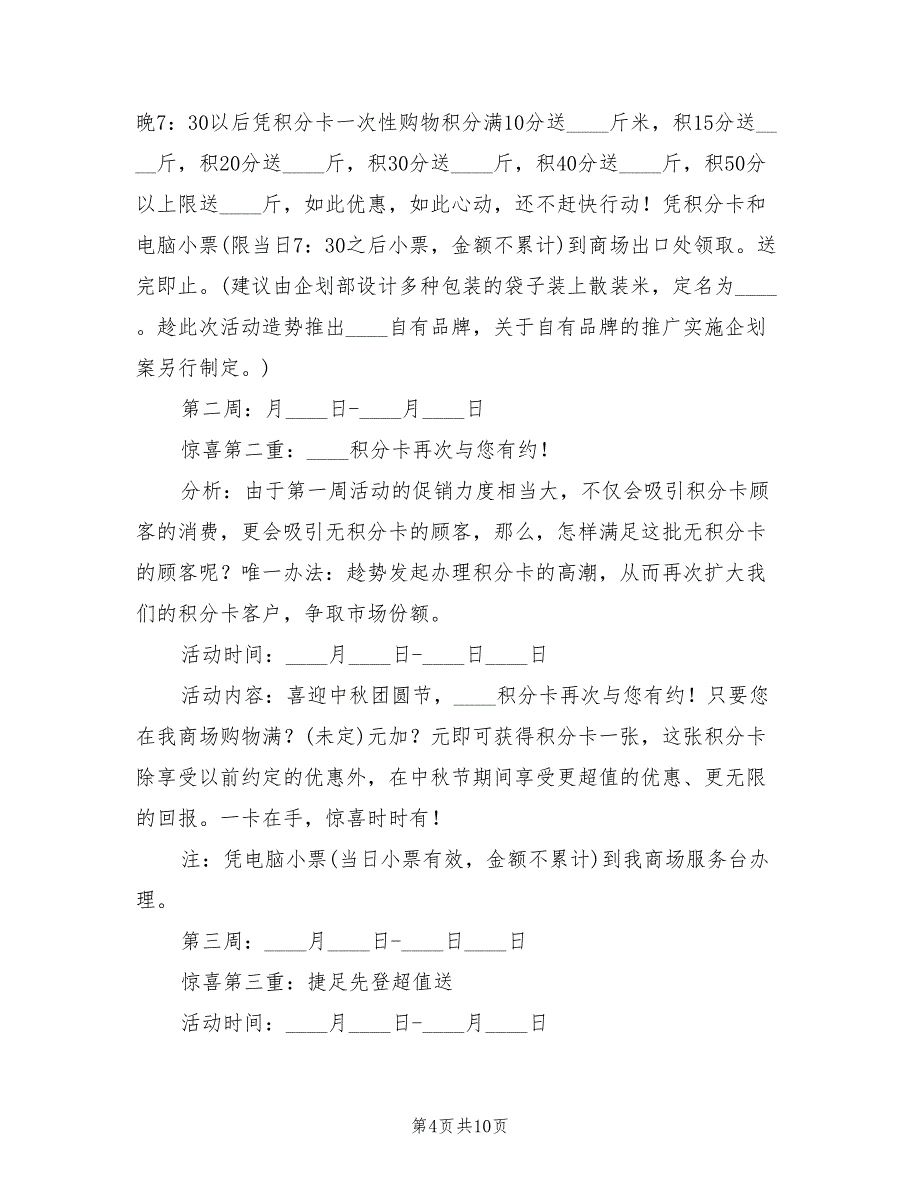 晚7：30以后凭积分卡一次性购物积分满10分送____斤米，积15分送__
__斤，积20分送____斤，积30分送____斤，积40分送____斤，积50分
以上限送____斤，如此优惠，如此心动，还不赶快行动！凭积分卡和
电脑小票(限当日7：30之后小票，金额不累计)到商场出口处领取。送
完即止。(建议由企划部设计多种包装的袋子装上散装米，定名为____
。趁此次活动造势推出____自有品牌，关于自有品牌的推广实施企划
案另行制定。)
第二周：月____日-____月____日
惊喜第二重：____积分卡再次与您有约！
分析：由于第一周活动的促销力度相当大，不仅会吸引积分卡顾
客的消费，更会吸引无积分卡的顾客，那么，怎样满足这批无积分卡
的顾客呢？唯一办法：趁势发起办理积分卡的高潮，从而再次扩大我
们的积分卡客户，争取市场份额。
活动时间：____月____日-____日____日
活动内容：喜迎中秋团圆节，____积分卡再次与您有约！只要您
在我商场购物满？(未定)元加？元即可获得积分卡一张，这张积分卡
除享受以前约定的优惠外，在中秋节期间享受更超值的优惠、更无限
的回报。一卡在手，惊喜时时有！
注：凭电脑小票(当日小票有效，金额不累计)到我商场服务台办
理。
第三周：____月____日-____日____日
惊喜第三重：捷足先登超值送
活动时间：____月____日-____月____日
第4页共10页